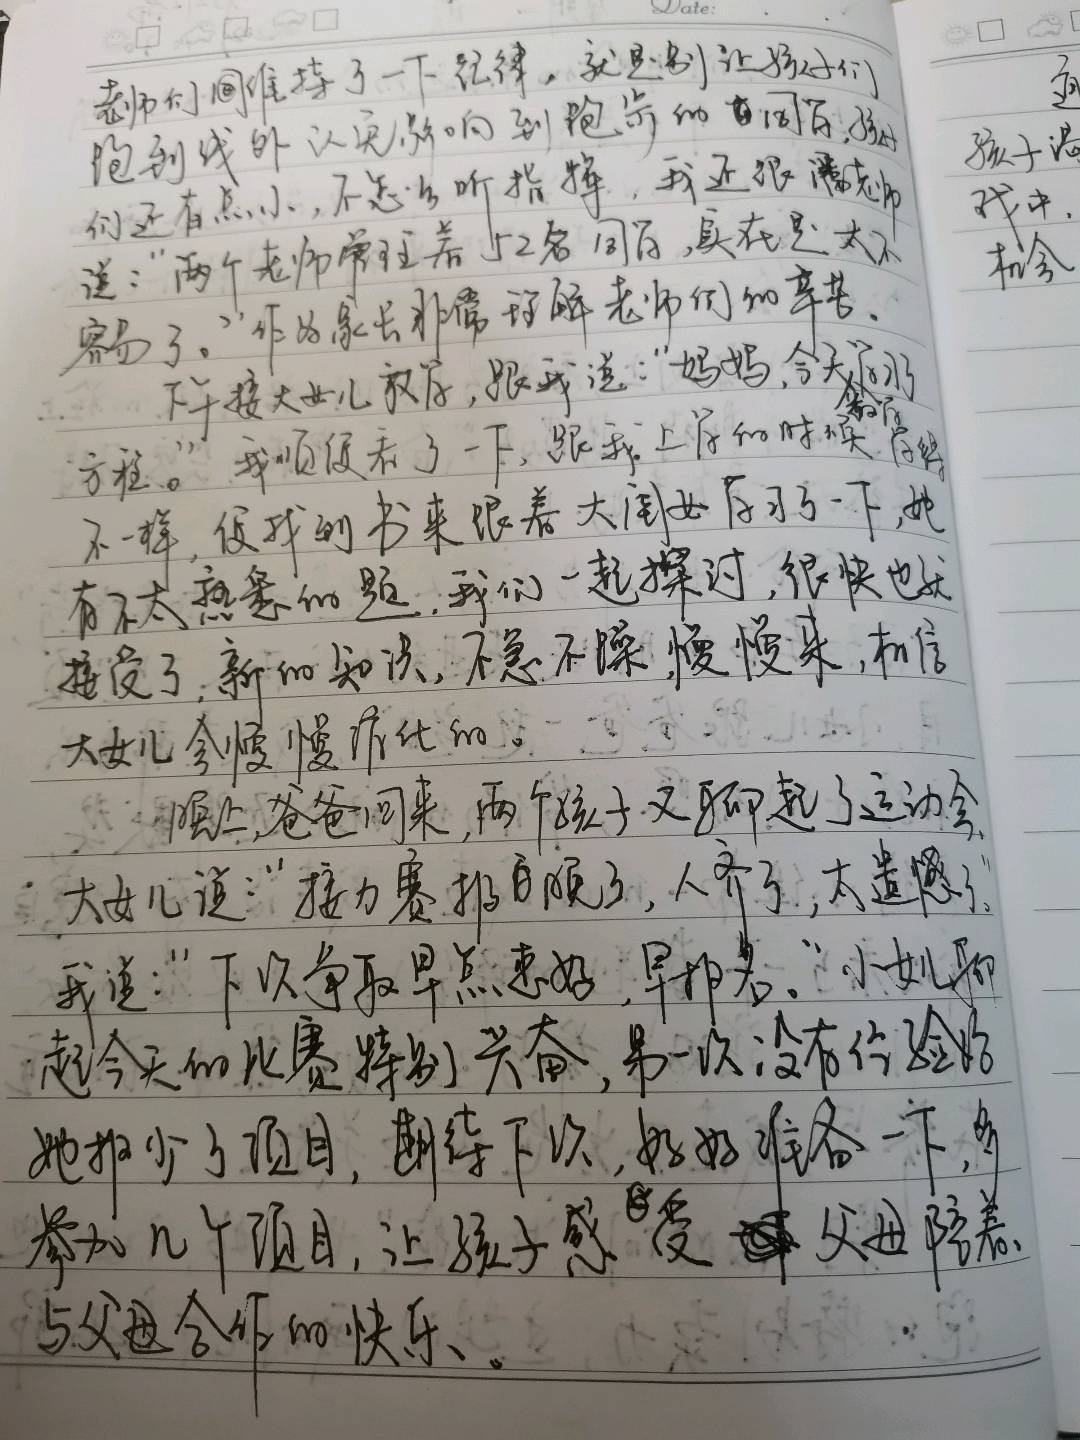 Date:
老师们维持了一下纪律，就是别让孩子们
跑到线外以免影响到跑步的同学，孩子
们还有点小，不怎么听指挥，我还跟潘老师
说：“两个老师管理着52名同学，实在是太不
容易了。”作为家长非常理解老师们的辛苦。
下午接大女儿放学，跟我说：“妈妈，今天学习了
方程。”我顺便看了一下，跟我上学的时候
不一样，便找到书来跟着大闺女学习了一下，她
有不太熟悉的题，我们一起探讨，很快也就
接受了，新的知识，不急不躁，慢慢来，相信
大女儿会慢慢消化的。
晚上，爸爸回来，两个孩子又聊起了运动会，
大女儿说：“接力赛报晚了，人齐了，太遗憾了”
我说：“下次争取早点来好，早报名。”小女儿聊
起今天的比赛特别兴奋，第一次没有经验给
她报少了项目，期待下次，好好准备一下，多
参加几个项目，让孩子感受父母陪着、
与父母合作的快乐、。
孩子
戏中，
机会